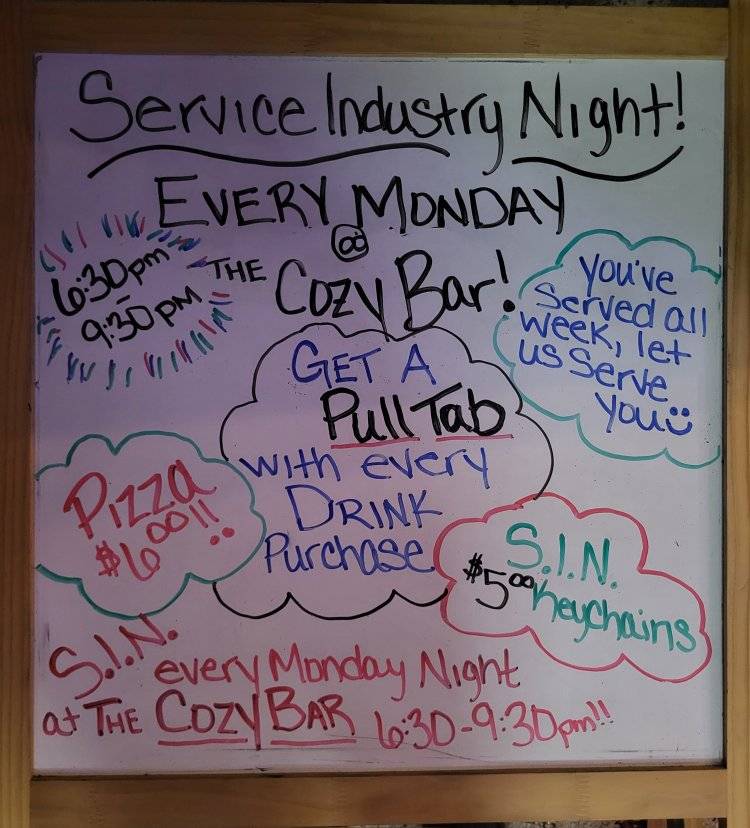 Service Industry Night!
EVERY MONDAY
@
THE COZY BAR!
6:30pm
-
9:30PM
you've
served all
week, let
us serve
you
GET A
Pull Tab
with every
DRINK
Purchase
Pizza
$6.00!!
S.I.N.
$5.00 Keychains
S.I.N. every Monday Night
at THE COZY BAR 6:30-9:30pm!!